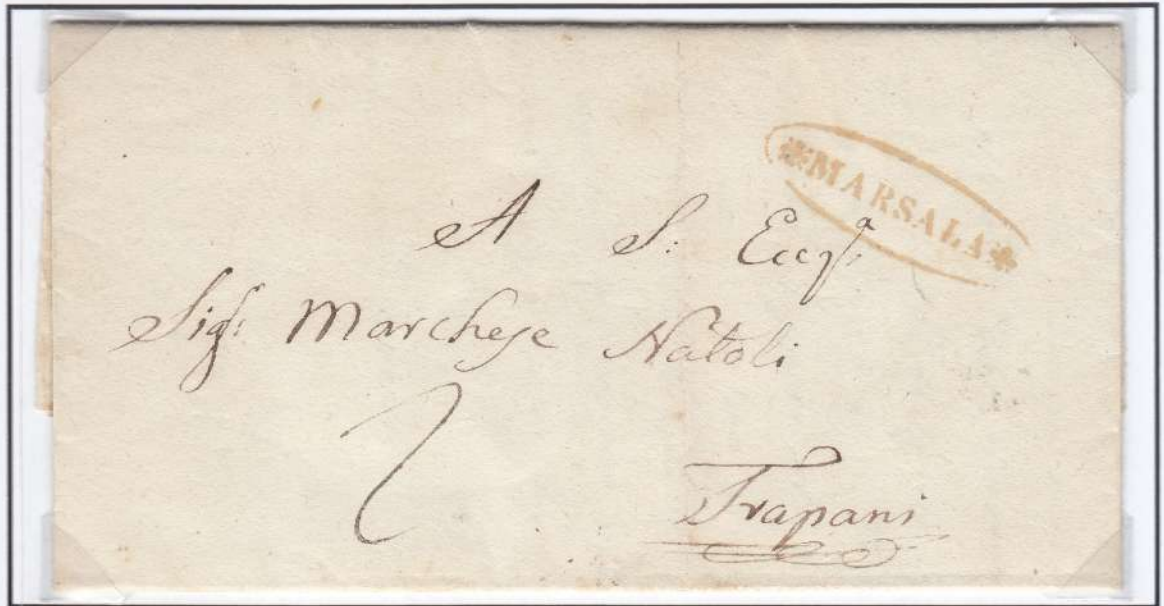 *MARSALA*
A S: Ecc.ª
Sig.r: Marchese Natoli
2
Trapani